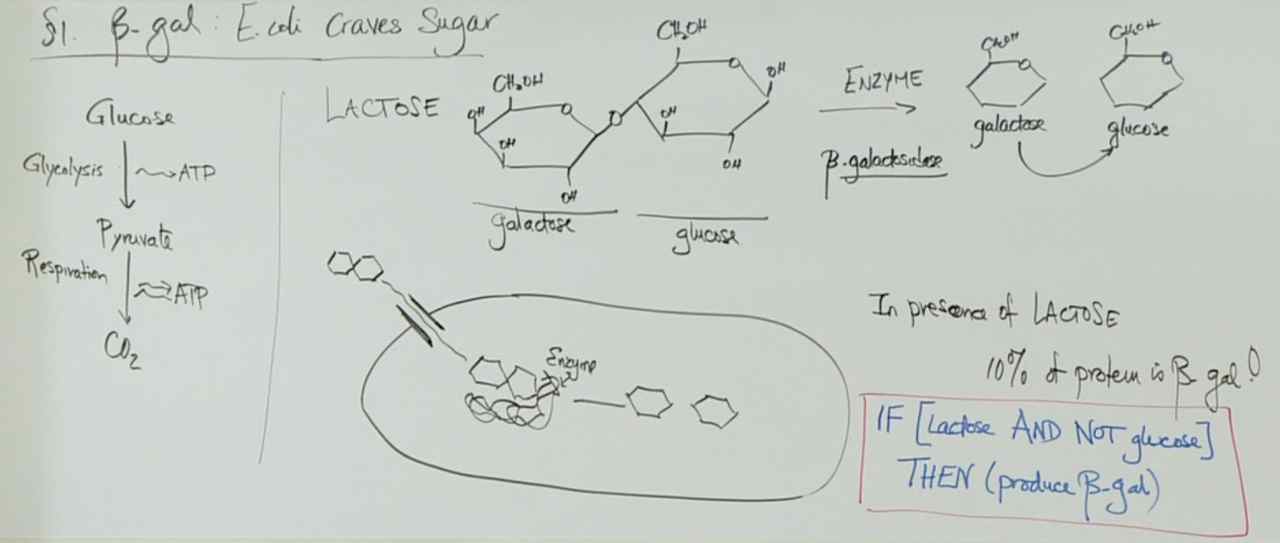 §1. β-gal: E.coli Craves Sugar
Glucose
Glycolysis
ATP
Pyruvate
Respiration
ATP
CO2
LACTOSE
CH2OH
OH
OH
OH
O
galactose
O
CH2OH
O
OH
OH
OH
glucose
ENZYME
β-galactosidase
CH2OH
O
galactose
CH2OH
O
glucose
Enzyme
In presence of LACTOSE
10% of protein is β gal!
IF [Lactose AND NOT glucose]
THEN (produce β-gal)